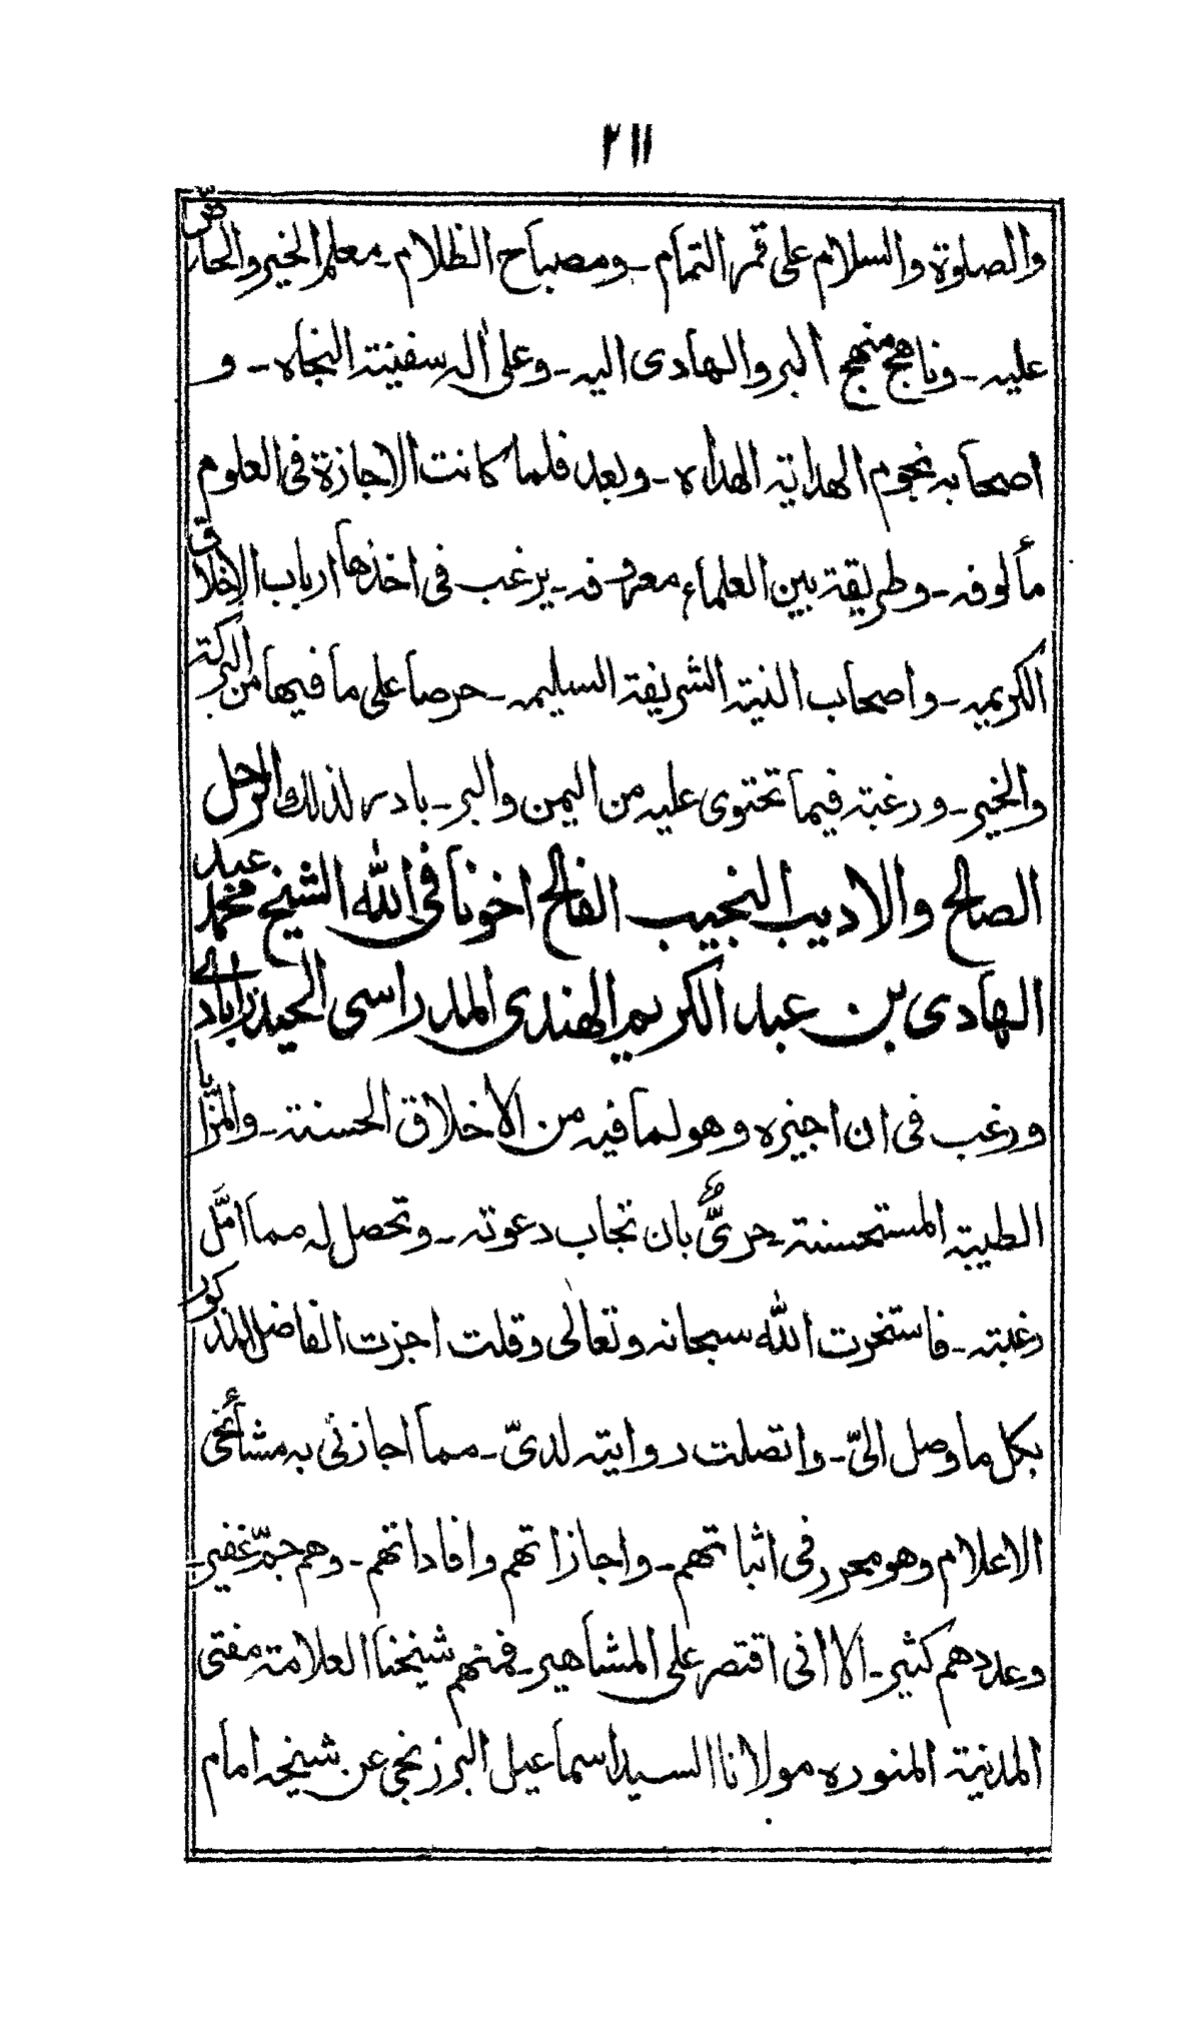 ٢١١
والصلوة والسلام على قمر التمام ـ ومصباح الظلام ـ معلم الخير والحاضّ
عليه ـ وناهج منهج البر والهادى اليه ـ وعلىٰ اٰله سفينة النجاه ـ و
اصحابه نجوم الهداية الهداه ـ وبعد فلما كانت الاجازة فى العلوم
مألوفه ـ وطريقة بين العلماء معروفه ـ يرغب فى اخذها ارباب الاخلاق
الكريمه ـ واصحاب النية الشريفة السليمه ـ حرصا على ما فيها من البركة
والخير ـ ورغبة فيما تحتوى عليه من اليمن والبر ـ بادر لذلك الرجل
الصالح والاديب النجيب الفالح اخونا فى الله الشيخ محمد عبد
الهادى بن عبد الكريم الهندى المدراسى الحيدراٰبادى
ورغب فى ان اجيزه وهو لما فيه من الاخلاق الحسنة ـ والمزايا
الطيبة المستحسنة ـ حرىٌّ بان تجاب دعوته ـ وتحصل له مما امَّل
رغبته ـ فاستخرت الله سبحانه وتعالٰى وقلت اجزت الفاضل المذكور
بكل ما وصل الىّ ـ واتصلت روايته لدىّ ـ مما اجازنى به مشائخى
الاعلام وهو محرر فى اثباتهم ـ واجازاتهم وافاداتهم ـ وهم جمّ غفير ـ
وعددهم كثير ـ الا انى اقتصر على المشاهير ـ فمنهم شيخنا العلامة مفتى
المدينة المنوره مولانا السيد اسماعيل البرزنجى عن شيخه امام